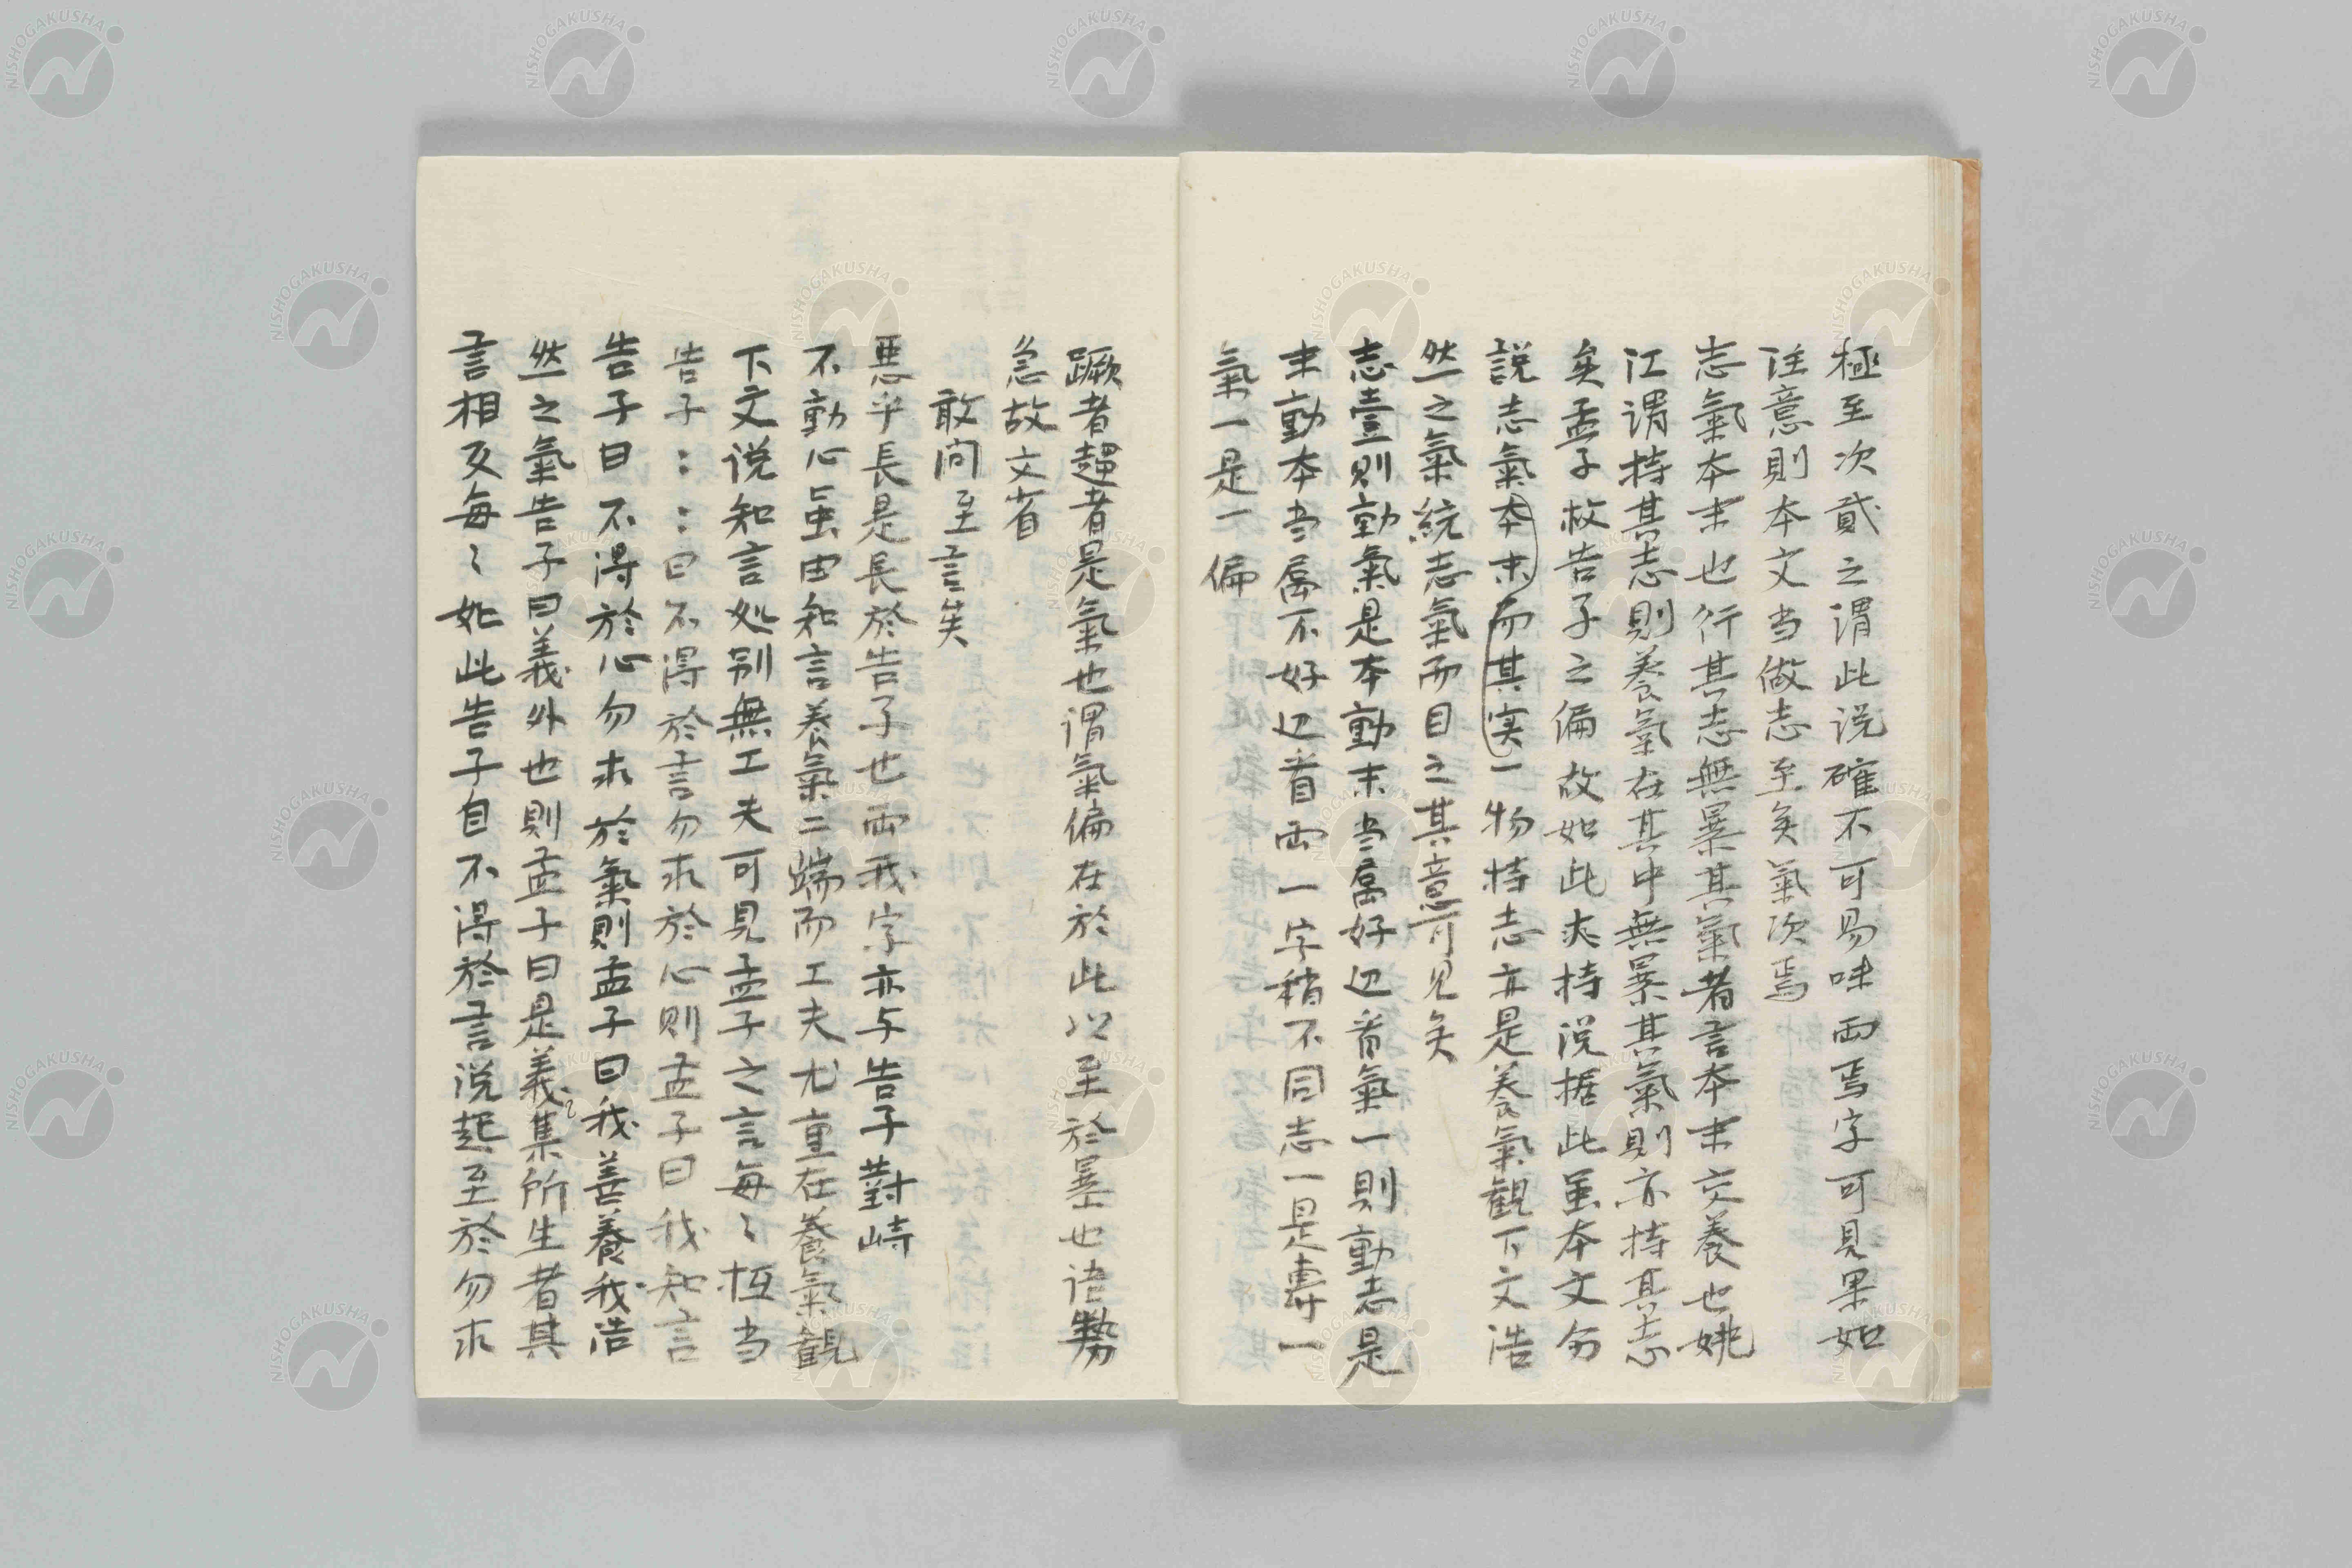 極至次貳之謂此说確不可易味两焉字可見果如
注意則本文当做志至矣氣次焉
志氣本末也行其志無暴其氣者言本末交養也姚
江谓持其志則養氣在其中無暴其氣則亦持其志
矣孟子救告子之偏故如此夾持说据此虽本文分
説志氣本末而其实一物持志亦是養氣觀下文浩
然之氣統志氣而目之其意可见矣
志壹則動氣是本動末当属好辺看氣一則動志是
末動本当属不好辺看两一字稍不同志一是專一
氣一是一偏
蹶者趨者是氣也谓氣偏在於此以至於暴也语勢
急故文省
敢问至言矣
悪乎長是長於告子也两我字亦与告子對峙
不動心虽由知言養氣二端而工夫尤重在養氣觀
下文说知言処别無工夫可見孟子之言每〻极当
告子：：曰不得於言勿求於心則孟子曰我知言
告子曰不得於心勿求於氣則孟子曰我善養我浩
然之氣告子曰義外也則孟子曰是義集所生者其
言相反每〻如此告子自不得於言说起至於勿求
NISHOGAKUSHA